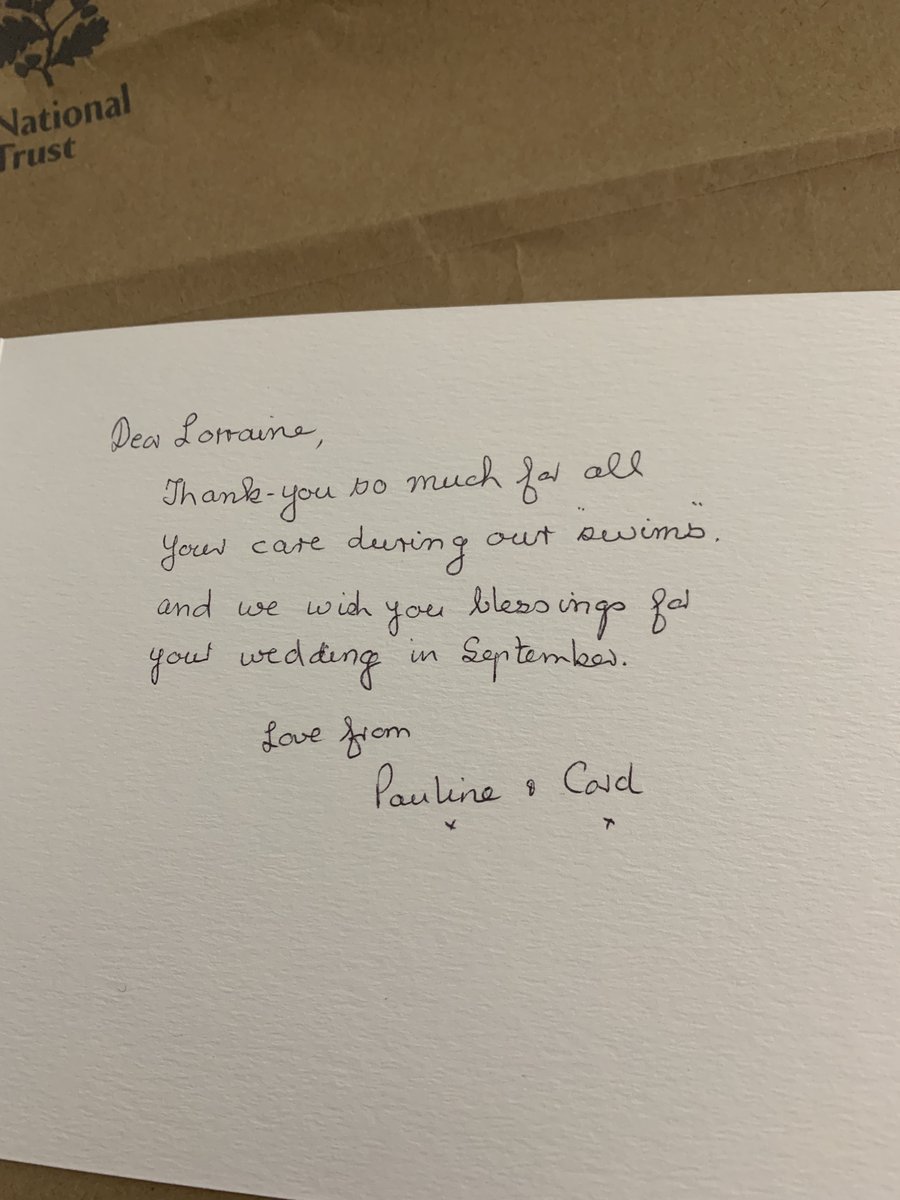 National
Trust
Dear Lorraine,
Thank-you so much for all
your care during our "swims".
and we wish you blessings for
your wedding in September.
Love from
Pauline & Carol
x x